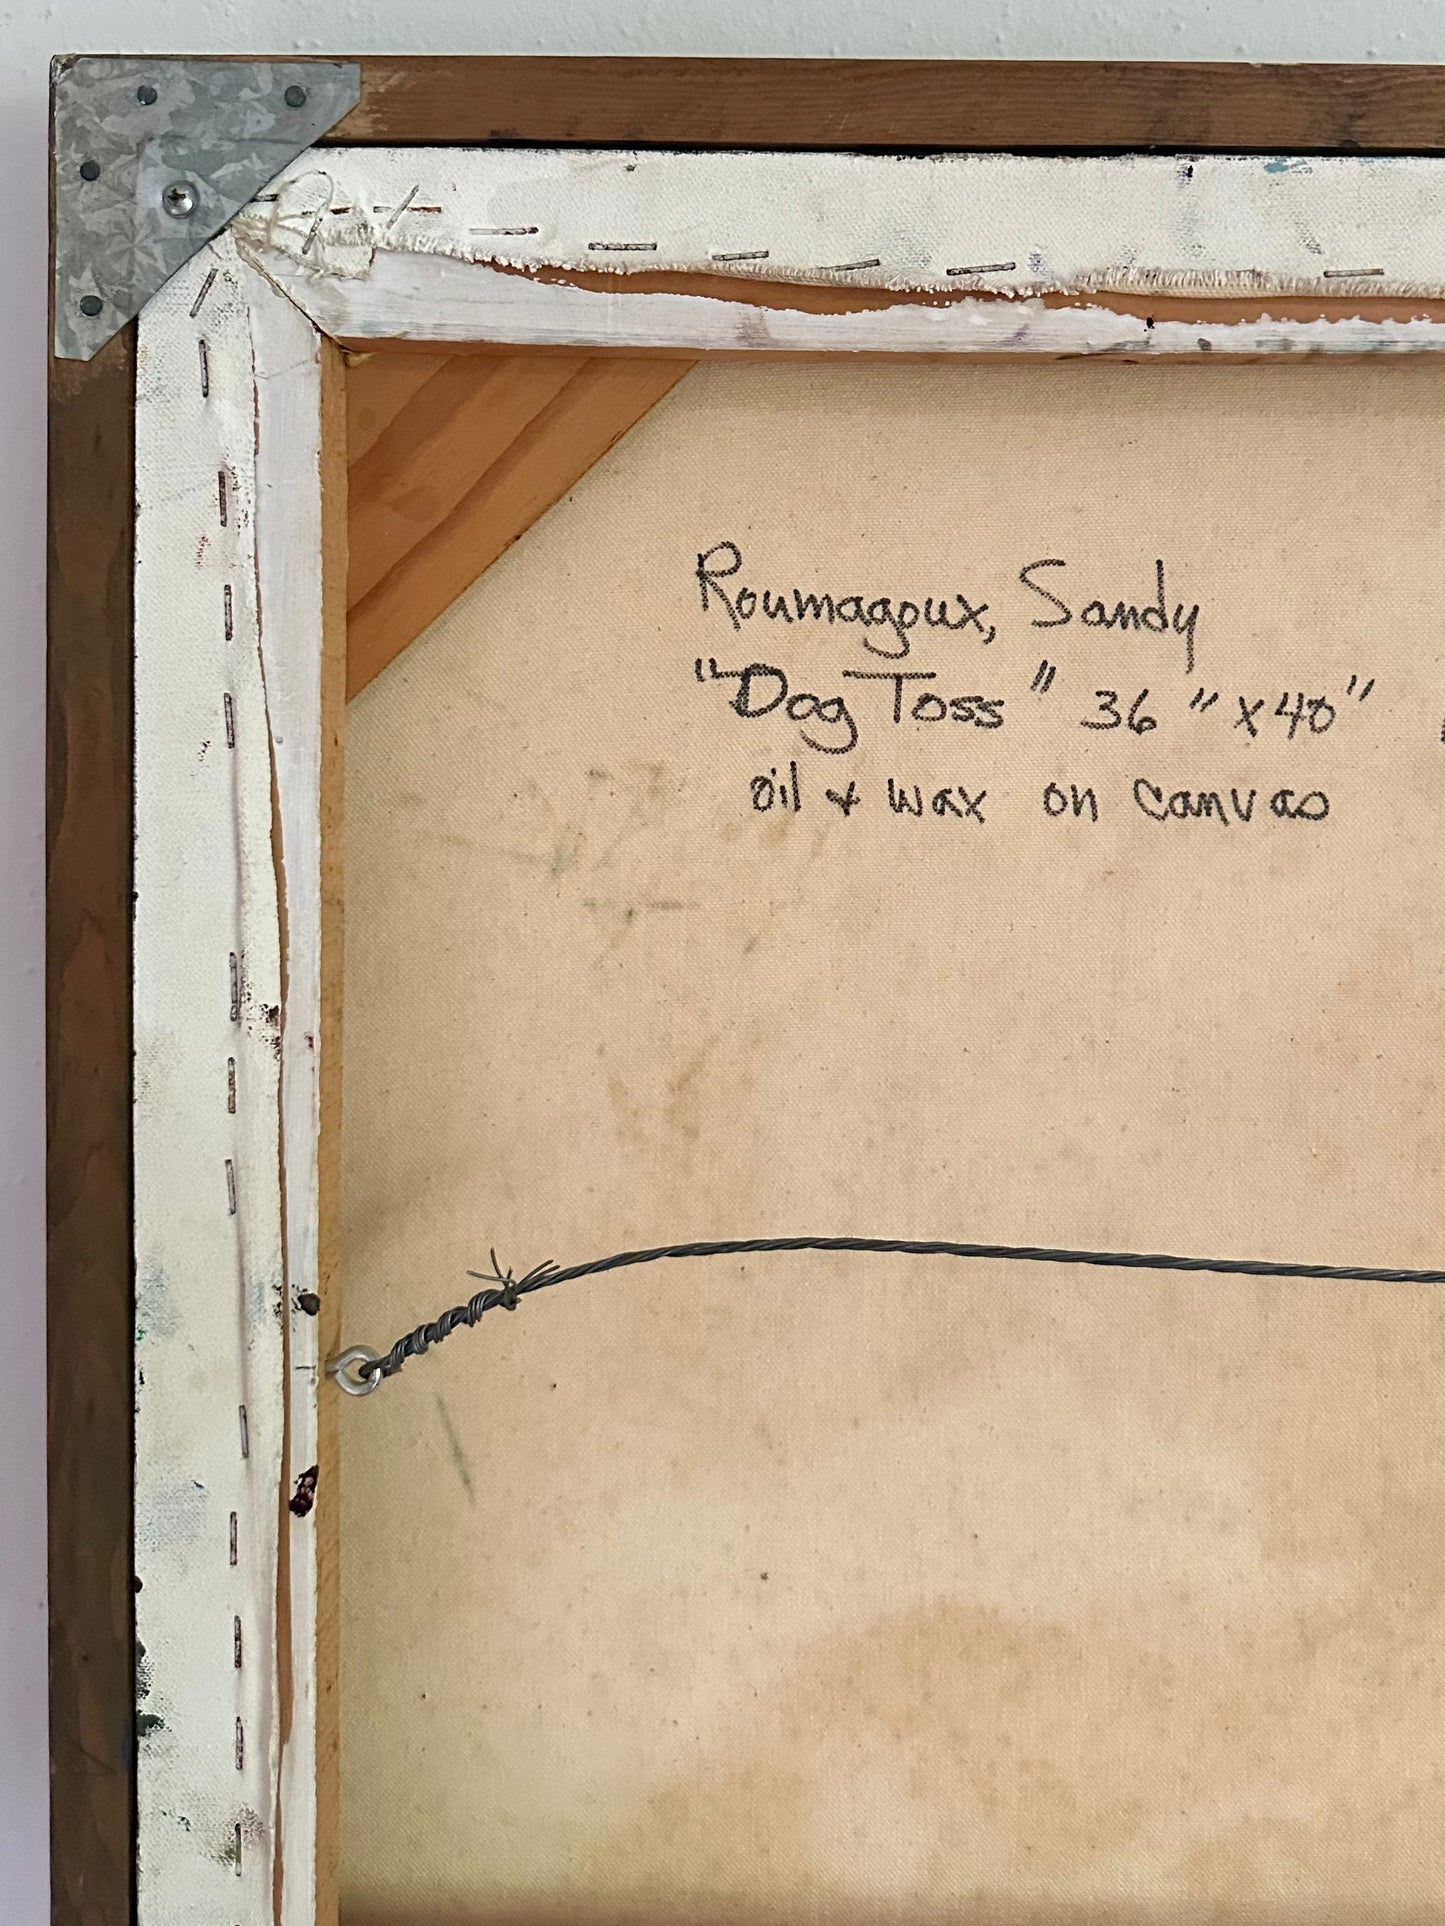 Roumagoux, Sandy
"Dog Toss" 36" x 40"
oil & wax on canvas